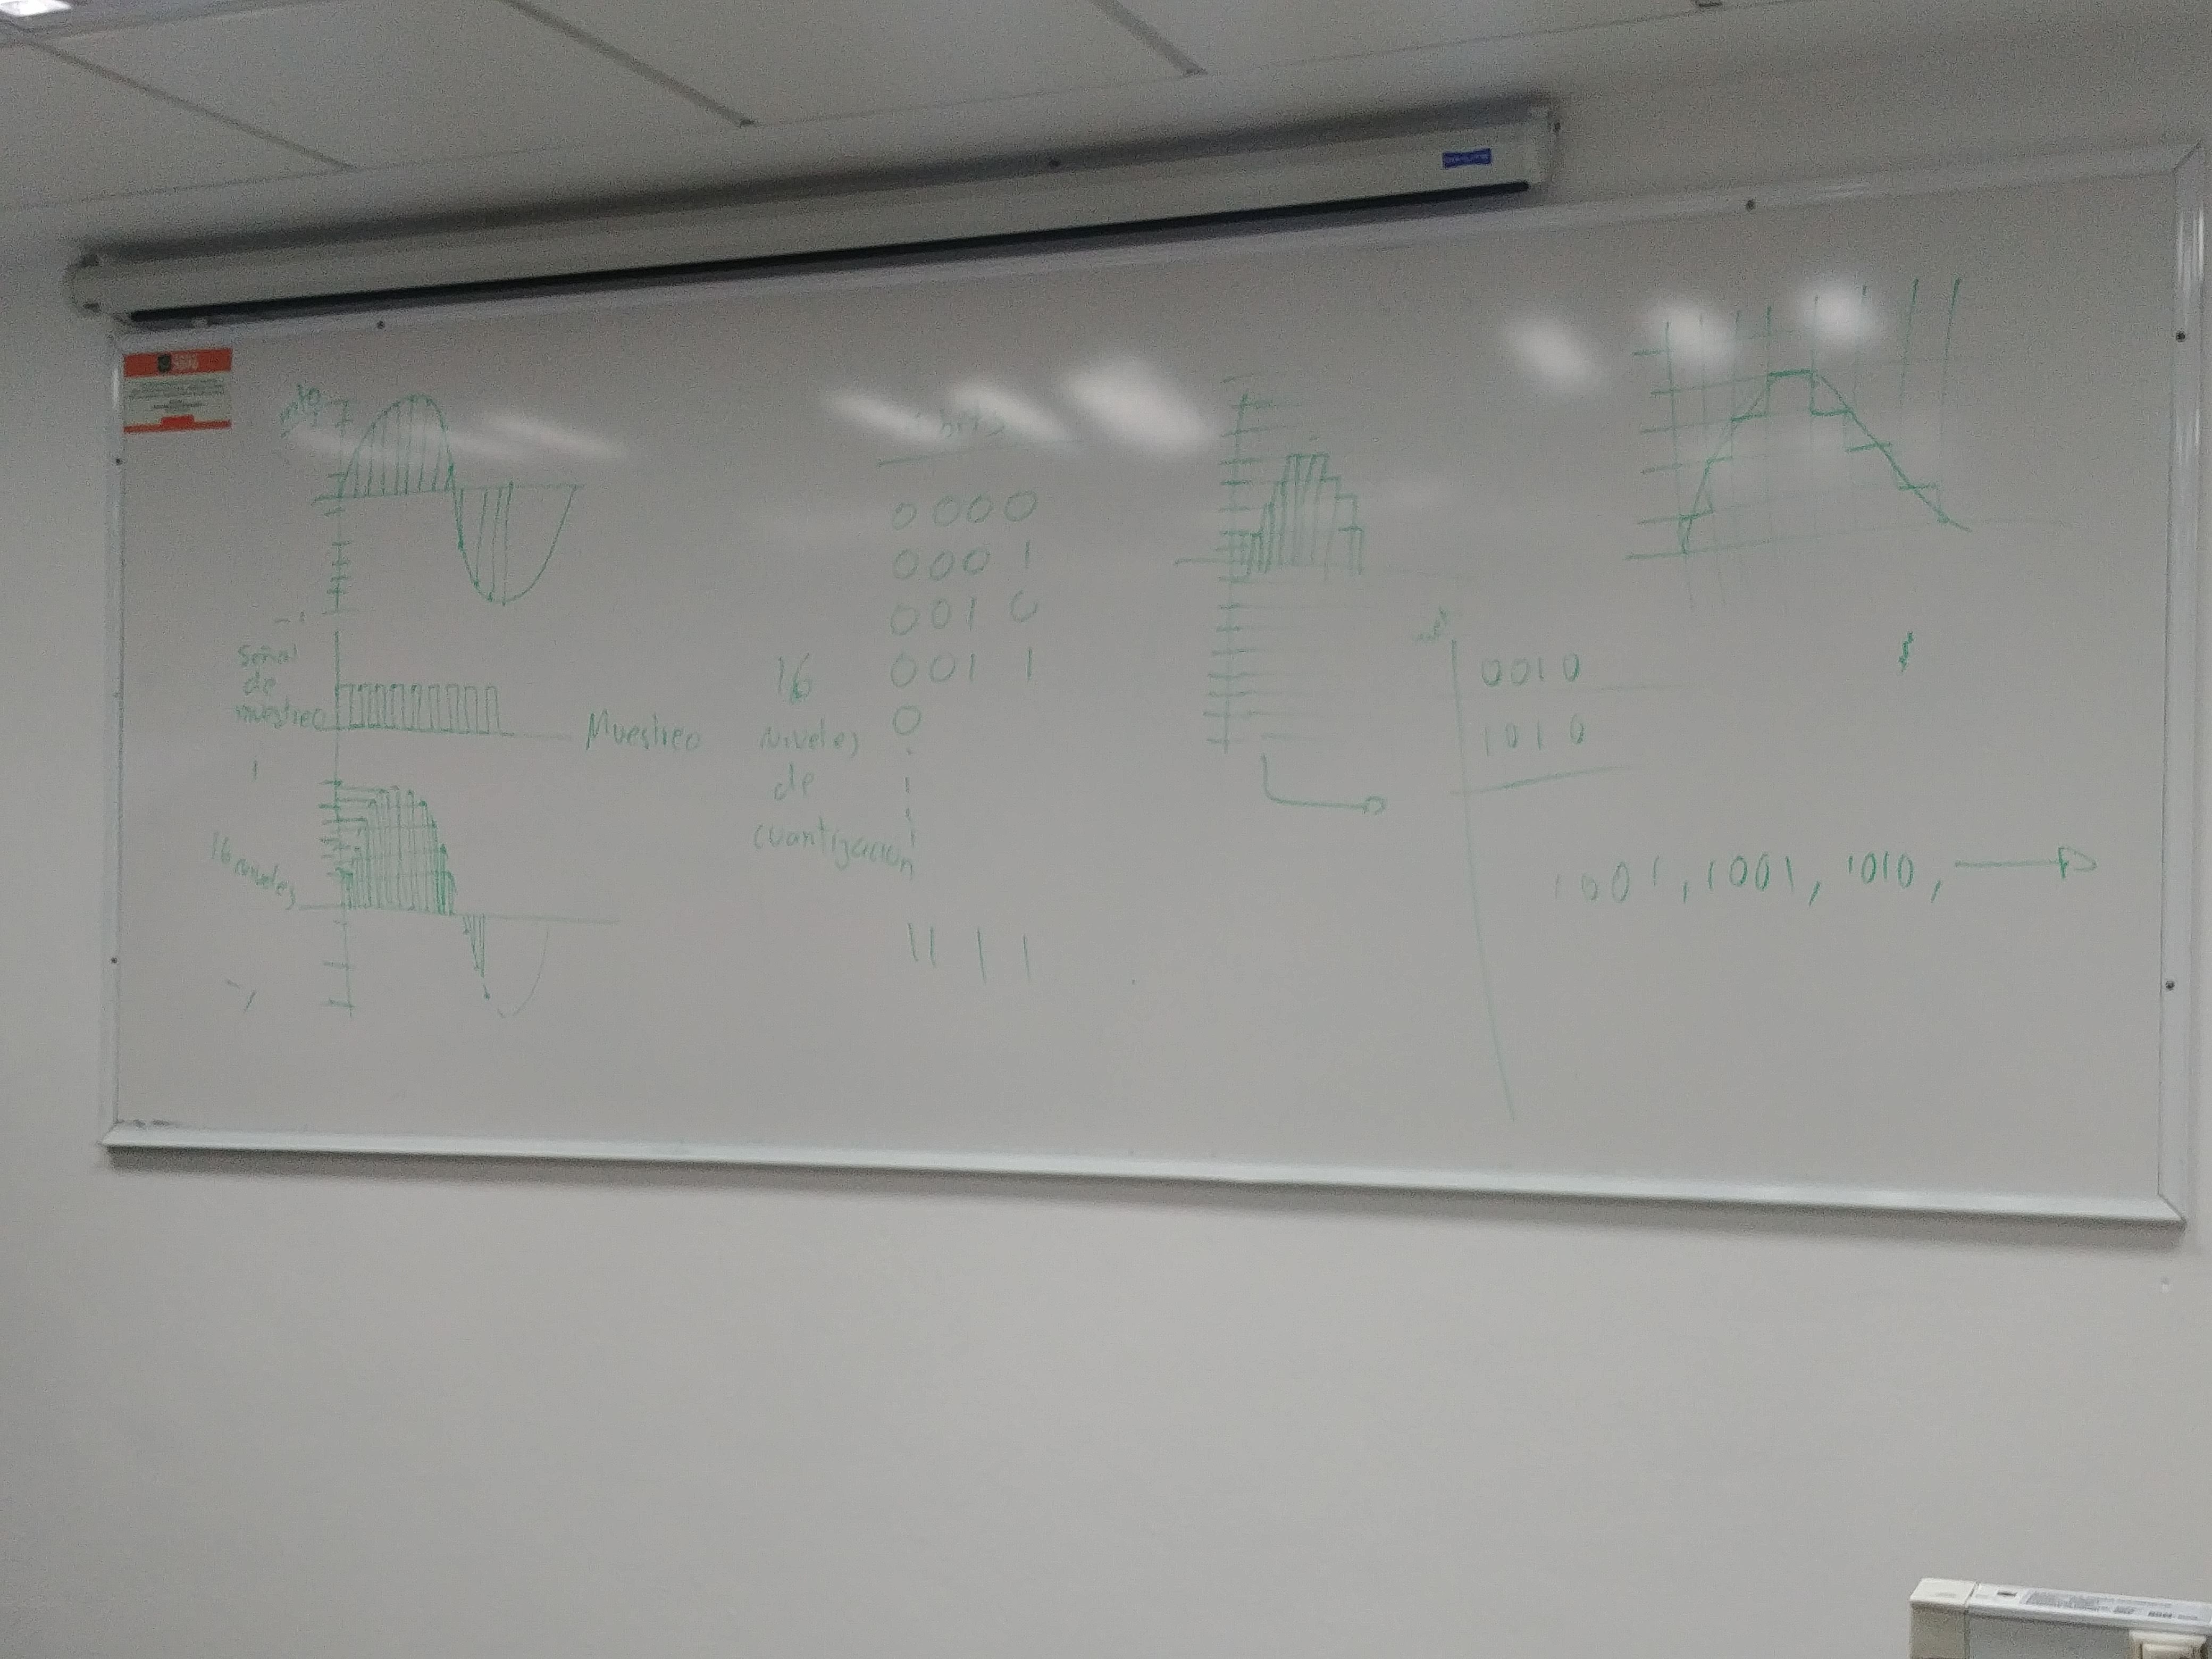 m(t)
1
-1
Señal
de
muestreo
Muestreo
1
16 niveles
-1
bits
0000
0001
0010
0011
0
1111
16
niveles
de
cuantización
0010
1010
1001, 1001, 1010,